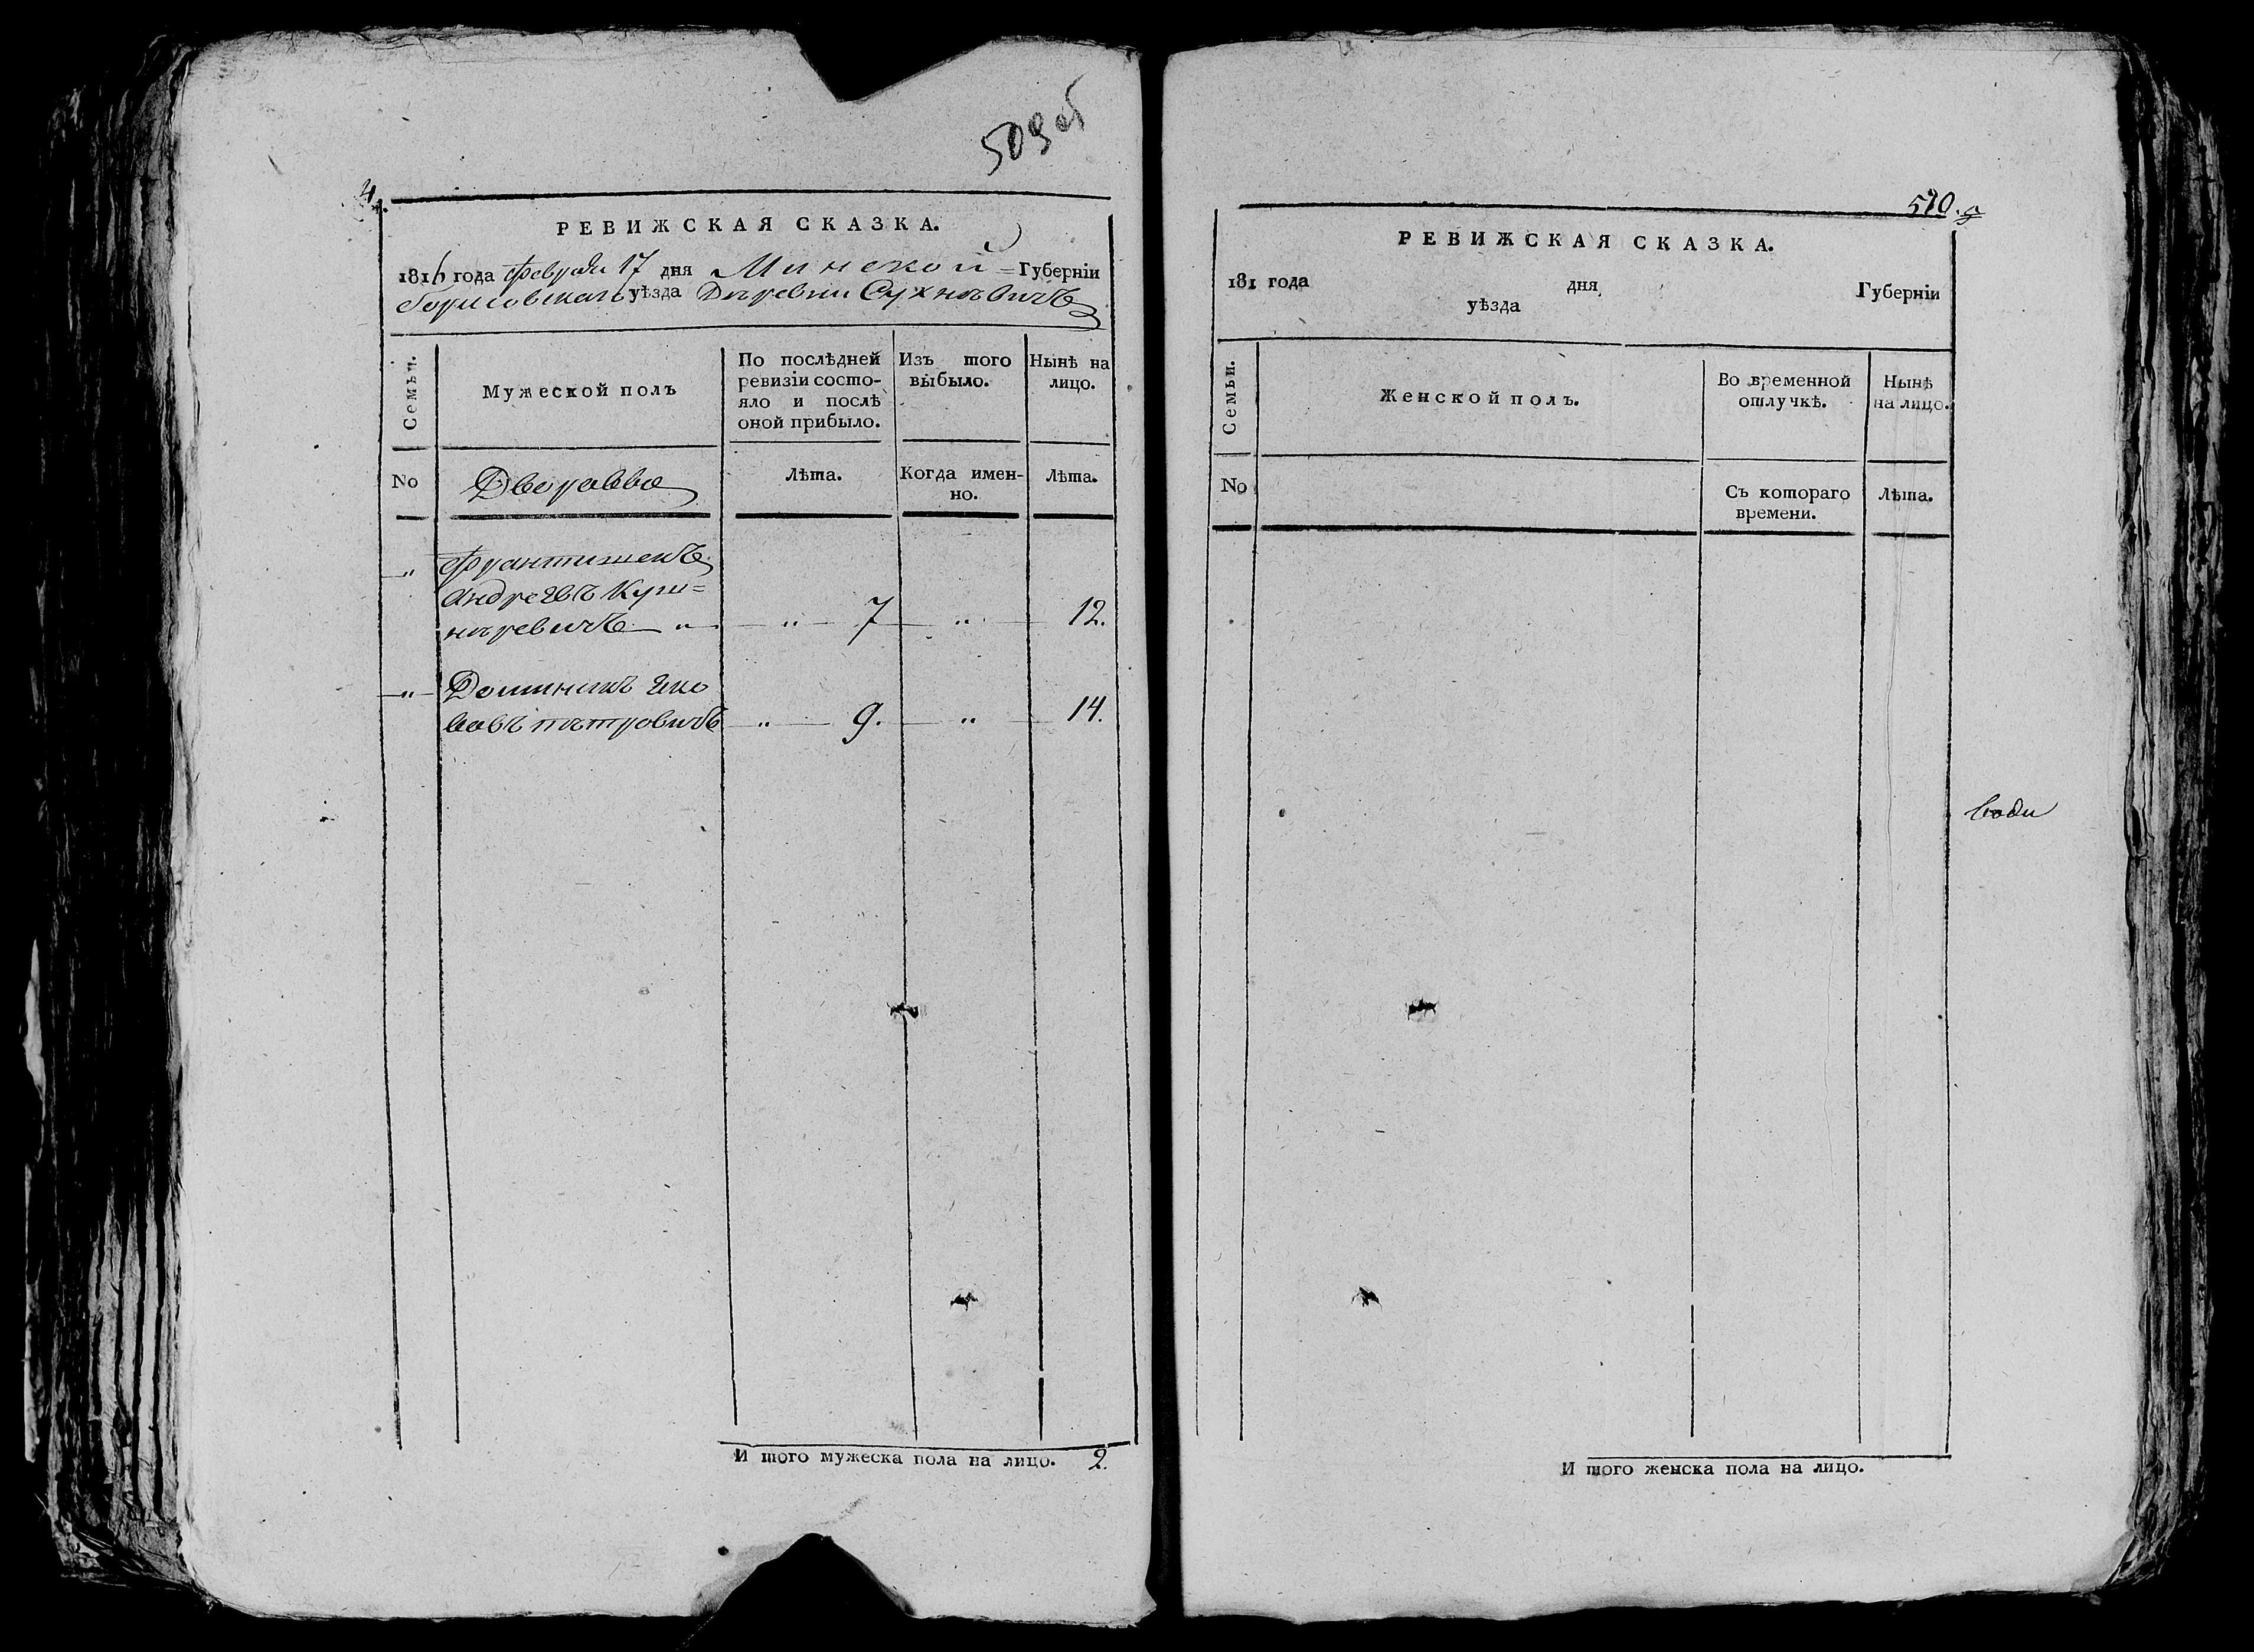 509об
4.
РЕВИЖСКАЯ СКАЗКА.
1816 года февраля 17 дня Минской = Губерніи
борисовскаго уѣзда Деревни Сухневичь
Семьи.
Мужеской полъ
По послѣдней ревизіи состо-
яло и послѣ
оной прибыло.
Изъ того
выбыло.
Нынѣ на
лицо.
No
лѣта.
Когда имен-
но.
лѣта.
„ Франтишекъ
андреевъ Куш=
неревичъ „ „ 7 „ 12.
„ Доминикъ Яко
вовъ петровичъ „ 9. „ 14.
И того мужеска пола на лицо. 2.
510. 5
РЕВИЖСКАЯ СКАЗКА.
181 года дня Губерніи
уѣзда
Семьи.
Женской полъ.
Во временной
отлучкѣ.
Нынѣ
на лицо.
No
Съ котораго
времени.
Лѣта.
води
И того женска пола на лицо.